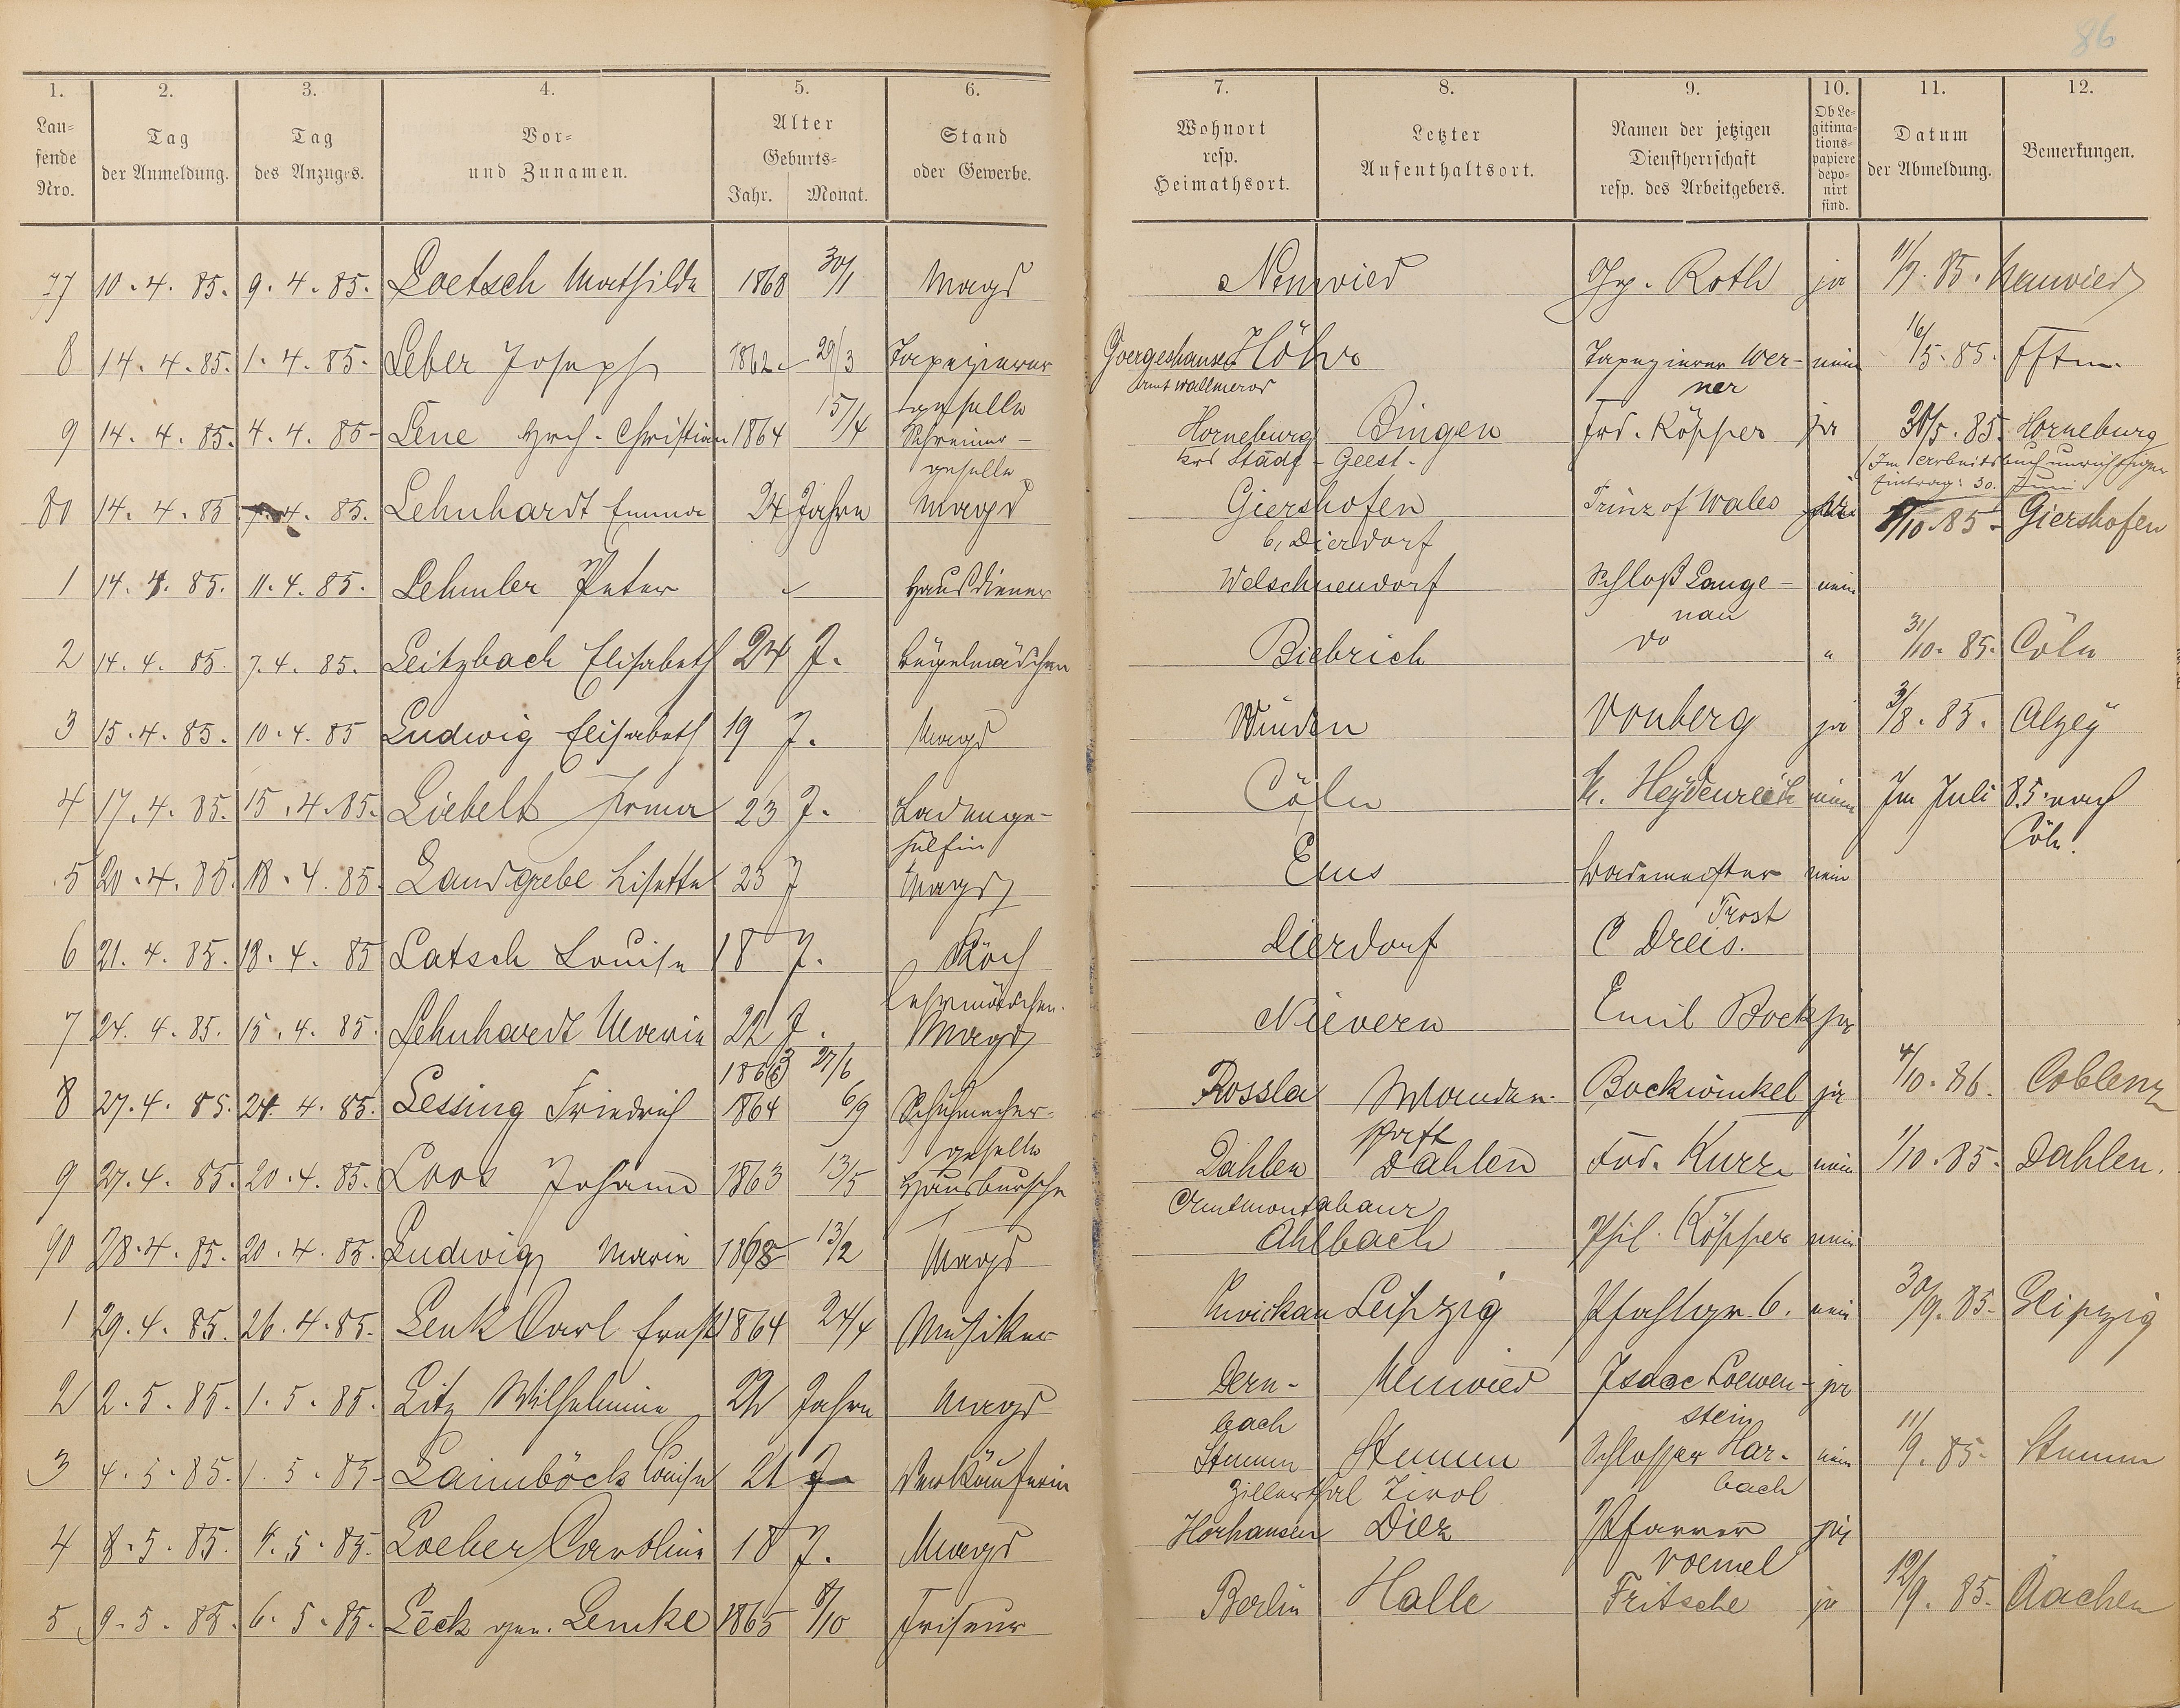 86
1. 2. 3. 4. 5. 6. 7. 8. 9. 10. 11. 12.
Laufende Nro. Tag der Anmeldung. Tag des Anzuges. Vor- und Zunamen. Alter Geburts- Jahr. Monat. Stand oder Gewerbe. Wohnort resp. Heimathsort. Letzter Aufenthaltsort. Namen der jetzigen Dienstherrschaft resp. des Arbeitgebers. Ob Legitimationspapiere deponirt sind. Datum der Abmeldung. Bemerkungen.
77 10. 4. 85. 9. 4. 85. Loetsch Mathilde 1868 30/1 Magd Neuwied Roth ja 11/9. 85. Neuwied
8 14. 4. 85. 1. 4. 85. Leber Joseph 1862 29/3 Tapezierer Goergeshausen Höhr Tapezierer Wer- nein 16/5. 85. Ffm.
geselle Amt Wallmerod ner
9 14. 4. 85. 4. 4. 85 Lene Hrch. Christian 1864 15/4 Schreiner- Horneburg Bingen Frd. Köpper ja 31/5. 85. Horneburg
geselle Krs Stade - Geest. (Im Arbeitsbuch unrichtiger
Eintrag: 30. Juni
80 14. 4. 85 7. 4. 85. Lehnhardt Emma 24 Jahre Magd Giershofen Prinz of Wales 1/10. 85. Giershofen
b. Dierdorf
1 14. 4. 85. 11. 4. 85. Lehmler Peter Hausdiener Welschneudorf Schloß Lange- nein
nau
2 14. 4. 85. 7. 4. 85. Leitzbach Elisabeth 24 J. Bügelmädchen Biebrich do " 31/10. 85. Cöln
3 15. 4. 85. 10. 4. 85 Ludwig Elisabeth 19 J. Magd Winden Vonberg ja 3/8. 85. Alzey
4 17. 4. 85. 15. 4. 85. Liebelt Irma 23 J. Ladenge- Cöln Heydenreich nein Im Juli 85. nach
hülfin Cöln.
5 20. 4. 85. 18. 4. 85. Landgrebe Lisette 23 J Magd Ems Bademeister nein
Trost
6 21. 4. 85. 18. 4. 85 Latsch Louise 18 J. Koch Dierdorf C Dreis.
lehrmädchen.
7 24. 4. 85. 15. 4. 85. Lehnhardt Maria 22 J. Magd Nievern Emil Bock ja
1863 27/6
8 27. 4. 85. 24. 4. 85. Lessing Friedrich 1864 6/9 Schuhmacher- Rossla Bockwinkel ja 4/10. 86. Coblenz
geselle
9 27. 4. 85. 20. 4. 85. Loos Johann 1863 13/5 Hausbursche Dahlen Dahlen Frd. Kurz nein 1/10. 85. Dahlen.
Amt Montabaur
90 28. 4. 85. 20. 4. 85. Ludwig Marie 1868 13/2 Magd Ahlbach Phil. Köpper nein
1 29. 4. 85. 26. 4. 85. Lenk Carl Ernst 1864 24/4 Musiker Zwickau Leipzig Pfahlgr. 6. nein 30/9. 85. Leipzig
2 2. 5. 85. 1. 5. 85. Litz Wilhelmine 22 Jahre Magd Dern- Neuwied Isaac Loewen- ja
bach stein
3 4. 5. 85. 1. 5. 85. Laimböck Louise 21 J Verkäuferin Stumm Stumm Schlosser Har- nein 11/9. 85. Stumm
Zillerthal Tirol bach
4 8. 5. 85. 4. 5. 85. Loeber Caroline 18 J. Magd Horhausen Diez Pfarrer ja
Voemel
5 9. 5. 85. 6. 5. 85. Leck gen. Lemke 1865 8/10 Friseur Berlin Halle Fritsche ja 12/9. 85. Aachen